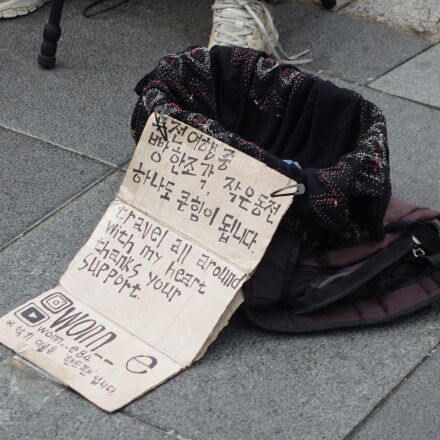 중
빵 한조각, 작은동전
하나도 큰힘이 됩니다
travel all around
with my heart
thanks your
support.
wonn__e
wonn__e84__
※ 악기 이름은 핸드팬 입니다